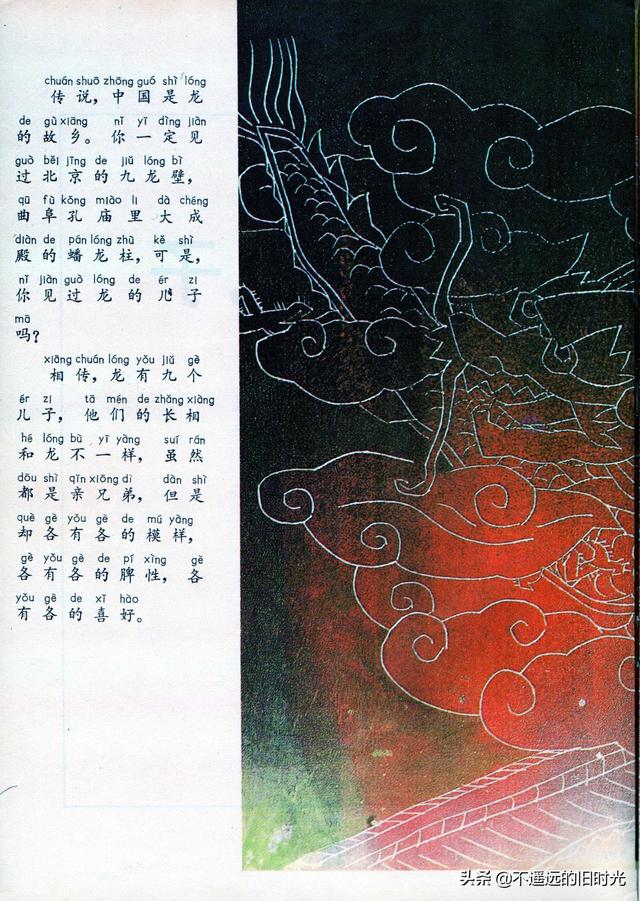 chuán shuō zhōng guó shì lóng
传说，中国是龙
de gù xiāng nǐ yī dìng jiàn
的故乡。你一定见
guò běi jīng de jiǔ lóng bì
过北京的九龙壁，
qū fù kǒng miào li dà chéng
曲阜孔庙里大成
diàn de pán lóng zhù kě shì
殿的蟠龙柱，可是，
nǐ jiàn guò lóng de ér zi
你见过龙的儿子
mā
吗？
xiāng chuán lóng yǒu jiǔ gè
相传，龙有九个
ér zi tā mén de zhǎng xiàng
儿子，他们的长相
hé lóng bù yī yàng suī rán
和龙不一样，虽然
dōu shì qīn xiōng di dàn shì
都是亲兄弟，但是
què gè yǒu gè de mú yàng
却各有各的模样，
gè yǒu gè de pí xìng gè
各有各的脾性，各
yǒu gè de xǐ hào
有各的喜好。
头条 @不遥远的旧时光